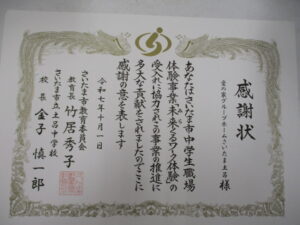 感謝状
愛の家グループホームさいたま土呂 様
あなたはさいたま市中学生職場
体験事業「未来くるワーク体験」の
受入れに協力されこの事業の推進に
多大な貢献をされましたのでここに
感謝の意を表します
令和七年十月一日
さいたま市教育委員会
教育長 竹居秀子
さいたま市立土呂中学校
校長 金子慎一郎